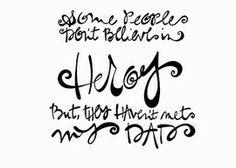 Some People
Don't Believe in
Heros
But, they Haven't met
my DAD